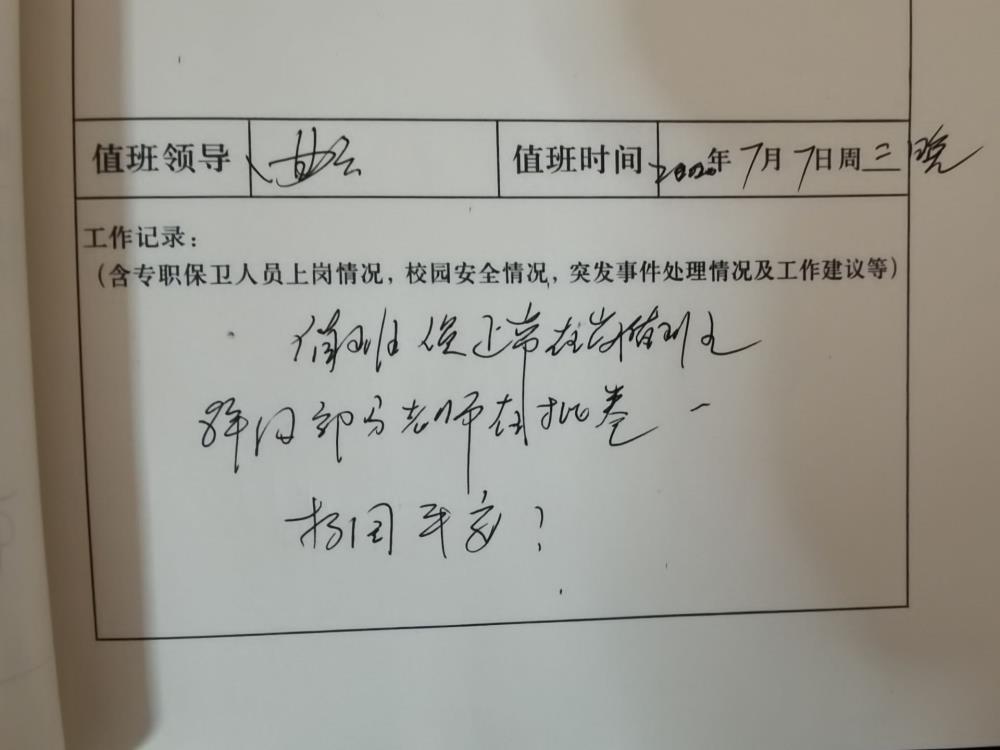 值班领导 值班时间 2020年7月7日周三晚
工作记录：
（含专职保卫人员上岗情况，校园安全情况，突发事件处理情况及工作建议等）
值班 正常在岗值班
部 老师在批卷
校园平安！